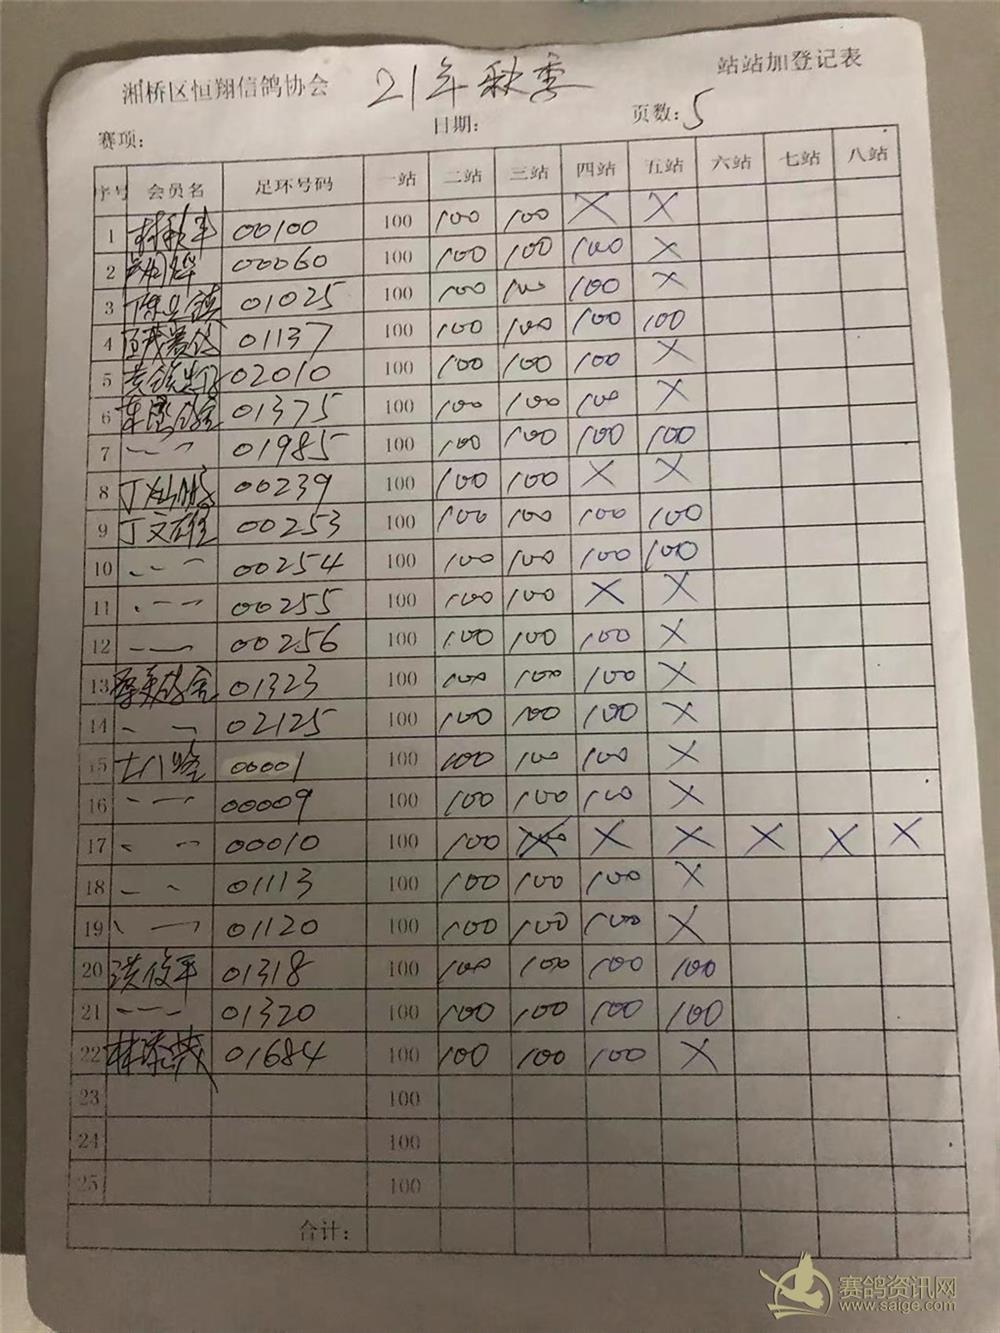 湘桥区恒翔信鸽协会 21年秋季 站站加登记表
赛项: 日期: 页数: 5
序号 会员名 足环号码 一站 二站 三站 四站 五站 六站 七站 八站
1 00100 100 100 100 X X
2 00060 100 100 100 100 X
3 01025 100 100 100 100 X
4 01137 100 100 100 100 100
5 02010 100 100 100 100 X
6 01375 100 100 100 100 X
7 01985 100 100 100 100 100
8 00239 100 100 100 X X
9 丁文雄 00253 100 100 100 100 100
10 00254 100 100 100 100 100
11 00255 100 100 100 X X
12 00256 100 100 100 100 X
13 01323 100 100 100 100 X
14 02125 100 100 100 100 X
15 00001 100 100 100 100 X
16 00009 100 100 100 100 X
17 00010 100 100 X X X X X
18 01113 100 100 100 100 X
19 01120 100 100 100 100 X
20 洪俊平 01318 100 100 100 100 100
21 01320 100 100 100 100 100
22 01684 100 100 100 100 X
23 100
24 100
25 100
合计:
赛鸽资讯网
www.saige.com